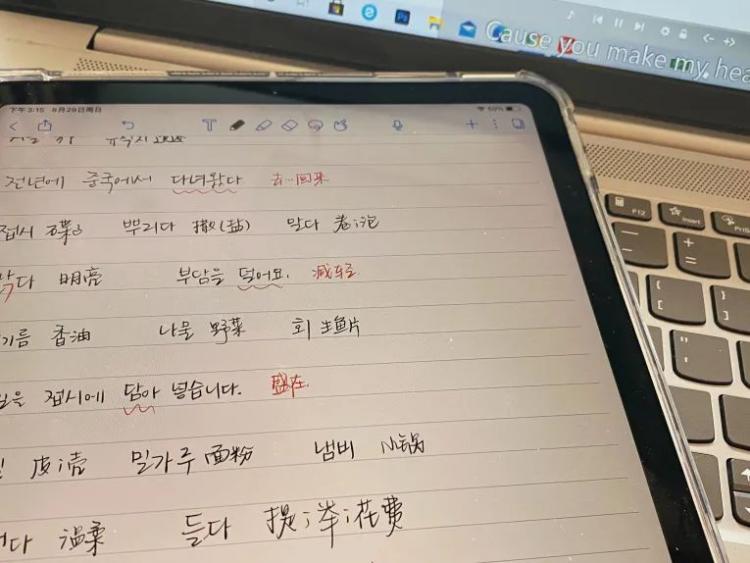 Cause you make my hea
下午3:15 8月29日周日
전년에 중국에서 다녀왔다 去…回来
접시 碟子 뿌리다 撒(盐) 말다 卷;泡
다 明亮 부담을 덜어요. 减轻
기름 香油 나물 野菜 회 生鱼片
을 접시에 담아 넣습니다. 盛在
皮;壳 밀가루 面粉 냄비 小锅
다 温柔 들다 提;举;花费
F12 Insert